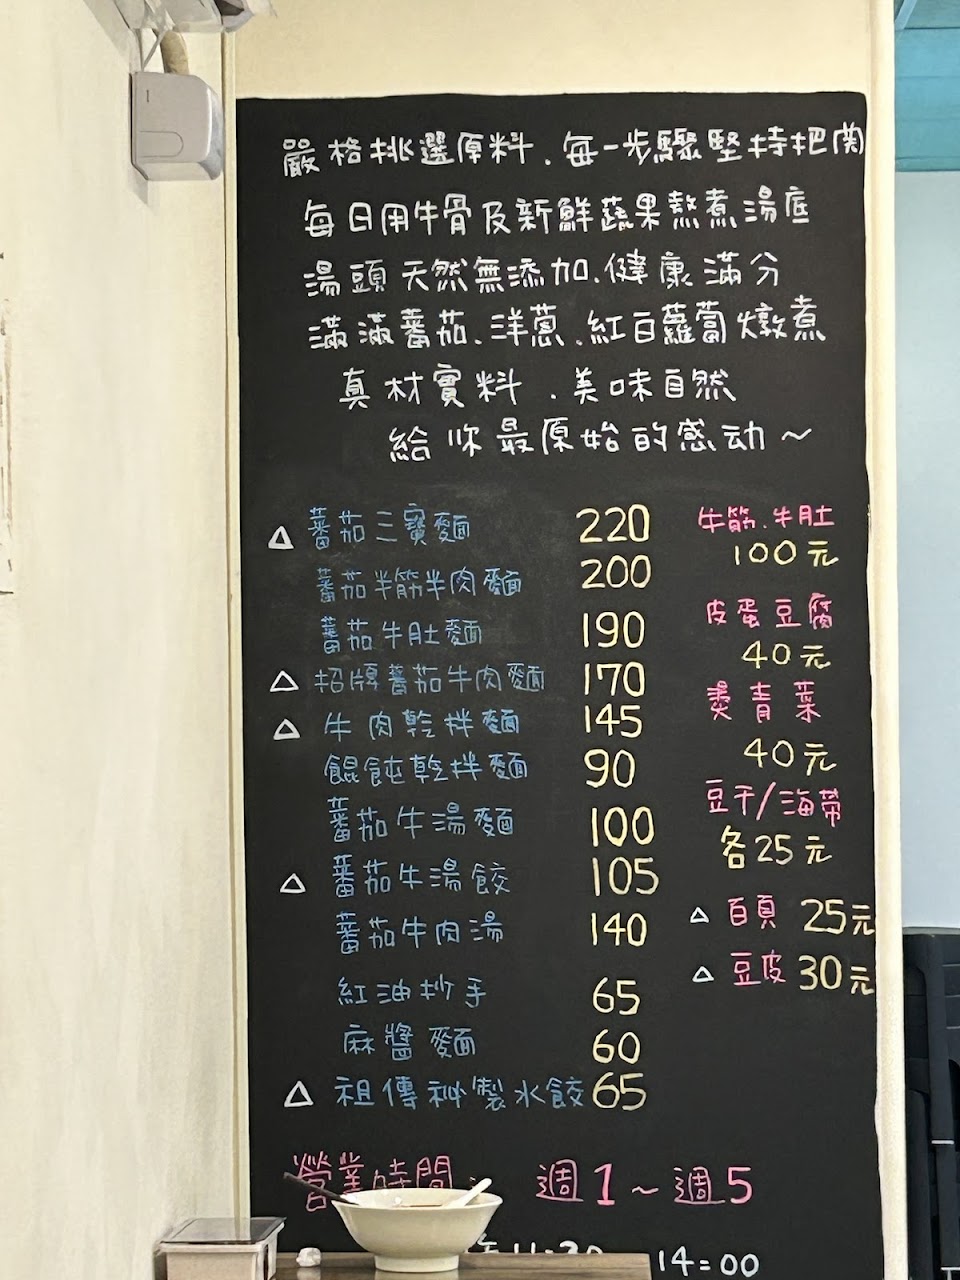 嚴格挑選原料.每一步驟堅持把関
每日用牛骨及新鮮蔬果熬煮湯底
湯頭天然無添加.健康滿分
滿滿蕃茄.洋蔥.紅白蘿蔔燉煮
真材實料.美味自然
給你最原始的感动~
△ 蕃茄三寶麵 220
蕃茄半筋半肉麵 200
蕃茄牛肚麵 190
△ 招牌蕃茄牛肉麵 170
△ 牛肉乾拌麵 145
餛飩乾拌麵 90
蕃茄牛湯麵 100
△ 蕃茄牛湯餃 105
蕃茄牛肉湯 140
紅油抄手 65
麻醬麵 60
△ 祖傳秘製水餃 65
牛筋.牛肚
100元
皮蛋豆腐
40元
燙青菜
40元
豆干/海帶
各25元
△ 百頁 25元
△ 豆皮 30元
營業時間: 週1~週5
11:30 14:00